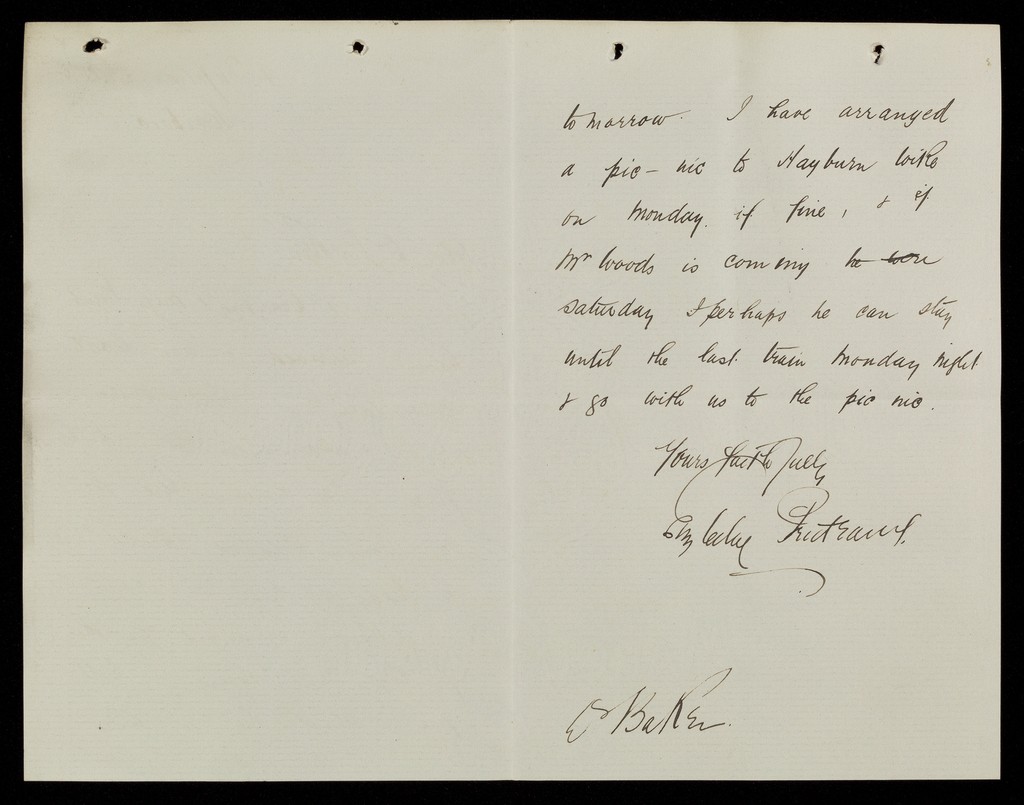 tomorrow. I have arranged
a pic-nic to Hayburn Wike
on Monday. if fine, & if
Mr Woods is coming
Saturday I perhaps he can stay
until the last train Monday night
& go with us to the pic nic.
Yours faithfully
Baker.